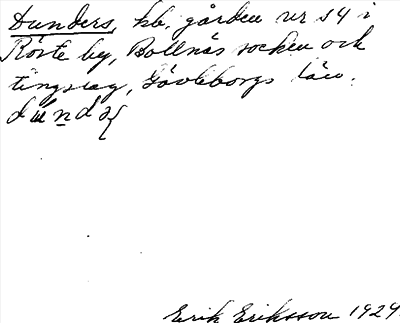 Dunders, hb, gården nr 14 i
Röste by, Bollnäs socken och
tingslag, Gävleborgs län.
Erik Eriksson 1929